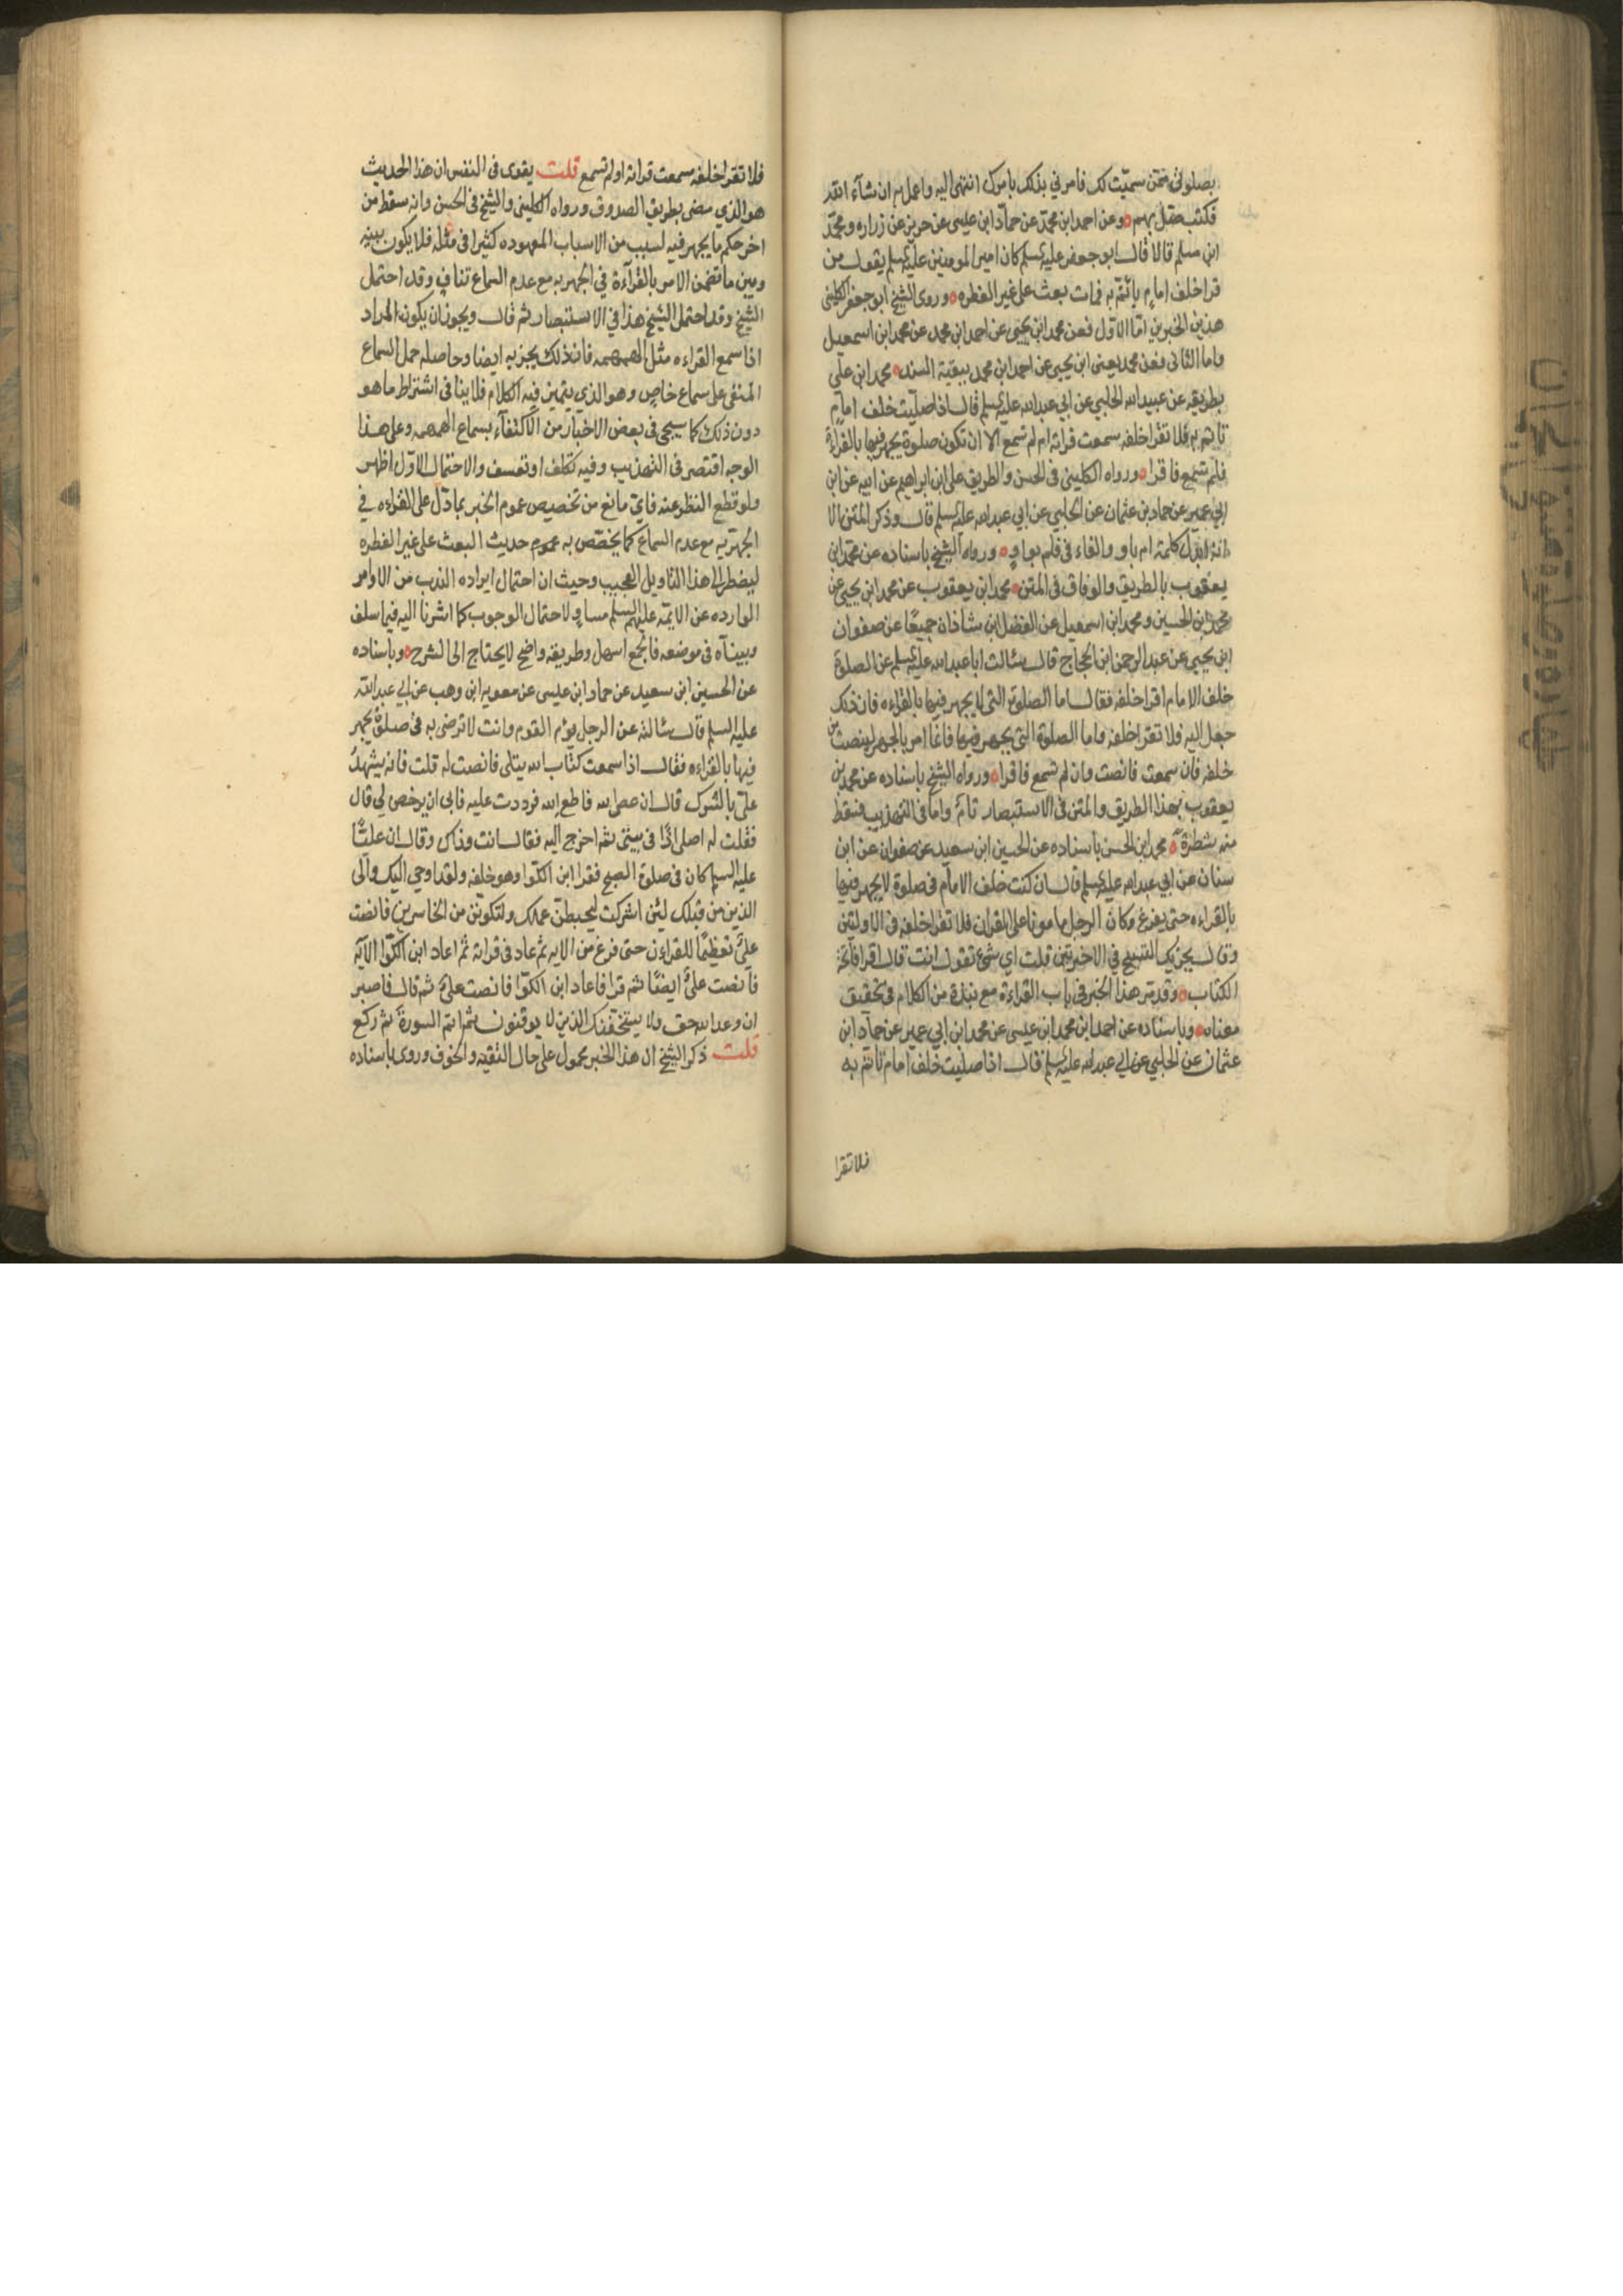 يصلوني فتن سميّت لك فامرني بذلك بامرك انتهى اليه واعمل به ان شاء الله
فكتب صّل بهم وعن احمد ابن محمّد عن حمّاد ابن عليسى عن حريز عن زراره ومحمّد
ابن مسلم قالا قال ابو جعفر عليه السلم كان امير المومنين عليه السلم يقول من
قرا خلف امام يائتمّ به فمات بعث على غير الفطره وروى الشيخ ابو جعفر الكليني
هذين الخبرين امّا الاوّل فعن محمد ابن يحيى عن احمد ابن محمد عن محمد ابن اسمعيل
واما الثاني فعن محمد يعنى ابن يحيى عن احمد ابن محمد ببقية السند محمد ابن علي
بطريقه عن عبيد الله الحلبي عن ابي عبد الله عليه السلم قال اذا صليّت خلف امام
تاتم به فلا تقرا خلفه سمعت قراته ام لم تسمع الا ان تكون صلوة يجهر فيها بالقراءة
فلم تسمع فاقرا ورواه الكليني في الحسن والطريق علي ابن ابراهيم عن ابيه عن ابن
ابي عمير عن حماد بن عثمان عن الحلبي عن ابي عبد الله عليه السلم قال وذكر المتن الا
انه ابدل كلمة ام باو والفاء في فلم بواو ورواه الشيخ باسناده عن محمد ابن
يعقوب بالطريق والوفاق في المتن محمد ابن يعقوب عن محمد ابن يحيى عن
محمد ابن الحسين ومحمد ابن اسمعيل عن الفضل ابن شاذان جميعًا عن صفوان
ابن يحيى عن عبد الرحمن ابن الحجاج قال سئالت ابا عبد الله عليه السلم عن الصلوة
خلف الامام اقرا خلفه فقال اما الصلوة التى لا يجهر فيها بالقراءه فان ذلك
جعل اليه فلا تقرا خلفه واما الصلوة التى يجهر فيها فانما امر بالجهر لينصت من
خلفه فان سمعت فانصت وان لم تسمع فاقرا ورواه الشيخ باسناده عن محمد بن
يعقوب بهذا الطريق والمتن في الاستبصار تامّ واما في التهذيب فسقط
منه شطره محمد ابن الحسن باسناده عن الحسين ابن سعيد عن صفوان عن ابن
سنان عن ابي عبد الله عليه السلم قال ان كنت خلف الامام في صلوة لا يجهر فيها
بالقراءه حتى يفرغ وكان الرجل مامونا على القران فلا تقرا خلفه في الاولتين
وقال يجزيك التسبيح في الاخيرتين قلت اي شئ تقول انت قال اقرا فاتحة
الكتاب وقد مر هذا الخبر في باب القراءة مع نبذة من الكلام في تحقيق
معناه وباسناده عن احمد ابن محمد ابن عيسى عن محمد ابن ابي عمير عن حمّاد ابن
عثمان عن الحلبي عن ابي عبد الله عليه السلم قال اذا صليت خلف امام تاتم به
فلا تقرا
فلا تقرا خلفه سمعت قراته او لم تسمع قلت يقوى في النفس ان هذا الحديث
هو الذي مضى بطريق الصدوق ورواه الكليني والشيخ في الحسن وانه سقط من
اخر حكم ما يجهر فيه لسبب من الاسباب المعهوده كثيرا في مثله فلا يكون بينه
وبين ما تضمن الامر بالقراءة في الجهريه مع عدم السماع تناف وقد احتمل
الشيخ وقد احتمل الشيخ هذا في الاستبصار ثم قال ويجوز ان يكون المراد
اذا سمع القراءه مثل الهمهمه فان ذلك يجزيه ايضا وحاصله حمل السماع
المنفى على سماع خاص وهو الذي يتميز فيه الكلام فلا ينافي اشتراط ما هو
دون ذلك كما سيجى في بعض الاخبار من الاكتفاء بسماع الهمهمه وعلى هذا
الوجه اقتصر في التهذيب وفيه تكلف او تعسف والاحتمال الاوّل اظهر
ولو قطع النظر عنه فايّ مانع من تخصيص عموم الخبر بما دّل على القراءه في
الجهريه مع عدم السماع كما يختصّ به عموم حديث البعث على غير الفطره
ليضطر الى هذا التاويل العجيب وحيث ان احتمال ايراده الندب من الاوامر
الوارده عن الايمّه عليهم السلم مساوٍ لاحتمال الوجوب كما اشرنا اليه فيما سلف
وبيناه في موضعه فالجمع اسهل وطريقه واضح لا يحتاج الى الشرح وباسناده
عن الحسين ابن سعيد عن حماد ابن عليسى عن معويه ابن وهب عن ابي عبد الله
عليه السلم قال سئالته عن الرجل يؤم القوم وانت لا ترضى به في صلوة يجهر
فيها بالقراءه فقال اذا سمعت كتاب الله يتلى فانصت له قلت فانه يشهدُ
عليّ بالشرك قال ان عصى الله فاطع الله فرددت عليه فابى ان يرخص لي قال
فقلت له اصلى اذًا في بيتى ثم اخرج اليه فقال انت وذاك وقال ان عليًّا
عليه السلم كان في صلوة الصبح فقرا ابن الكوّا وهو خلفه ولقد اوحي اليك والى
الذين من قبلك لئن اشركت ليحبطنّ عملك ولتكوننّ من الخاسرين فانصت
عليّ تعظيمًا للقراءن حتى فرغ من الايه ثم عاد في قراته ثمّ اعاد ابن الكوّا الآية
فانصت عليّ ايضًا ثم قرا فاعاد ابن الكوّا فانصت عليّ ثم قال فاصبر
ان وعد الله حق ولا يستخفنك الذين لا يوقنون ثم اتم السورة ثم ركع
قلت ذكر الشيخ ان هذا الخبر محمول على حال التقيه والخوف وروى باسناده